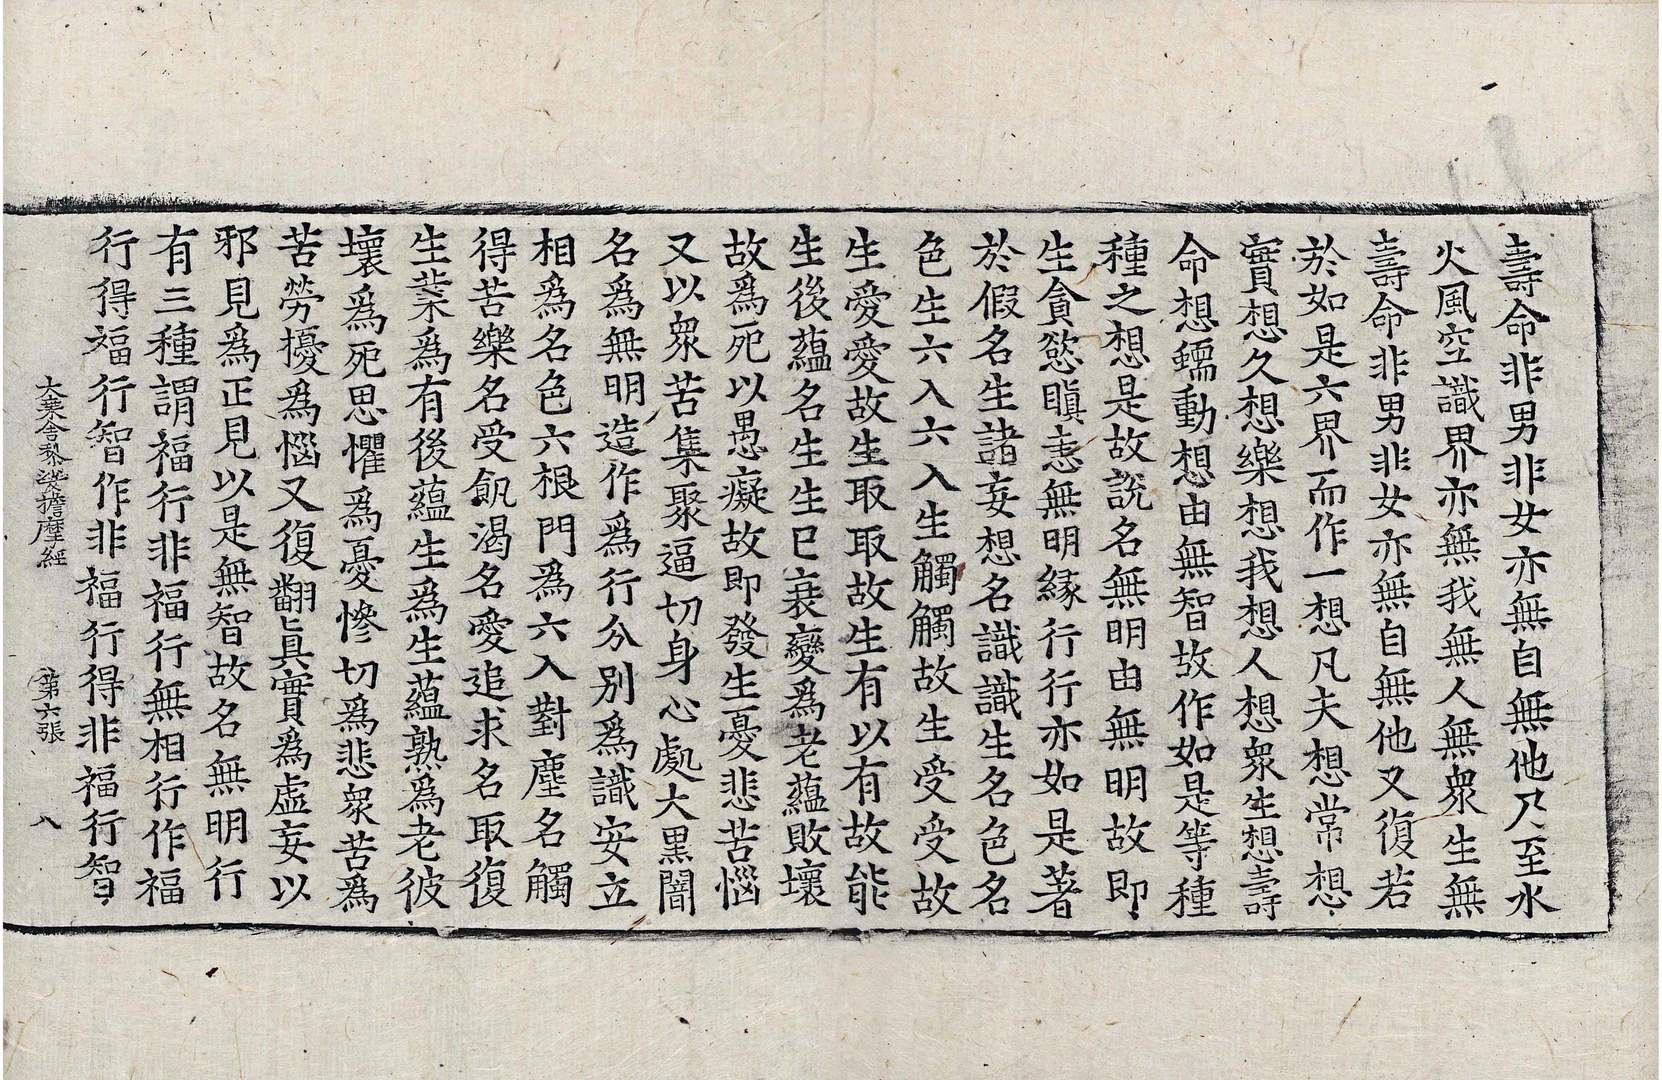 壽命非男非女亦無自無他乃至水
火風空識界亦無我無人無衆生無
壽命非男非女亦無自無他又復若
於如是六界而作一想凡夫想常想
實想久想樂想我想人想衆生想壽
命想蠕動想由無智故作如是等種
種之想是故說名無明由無明故即
生貪慾瞋恚無明緣行行亦如是著
於假名生諸妄想名識識生名色名
色生六入六入生觸觸故生受受故
生愛愛故生取取故生有以有故能
生後蘊名生生已衰變爲老蘊敗壞
故爲死以愚癡故即發生憂悲苦惱
又以衆苦集聚逼切身心處大黑闇
名爲無明造作爲行分別爲識安立
相爲名色六根門爲六入對塵名觸
得苦樂名受飢渴名愛追求名取復
生業爲有後蘊生爲生蘊熟爲老彼
壞爲死思懼爲憂慘切爲悲衆苦爲
苦勞擾爲惱又復翻眞實爲虛妄以
邪見爲正見以是無智故名無明行
有三種謂福行非福行無相行作福
行得福行智作非福行得非福行智
大乘舍黎娑擔摩經　第六張　八